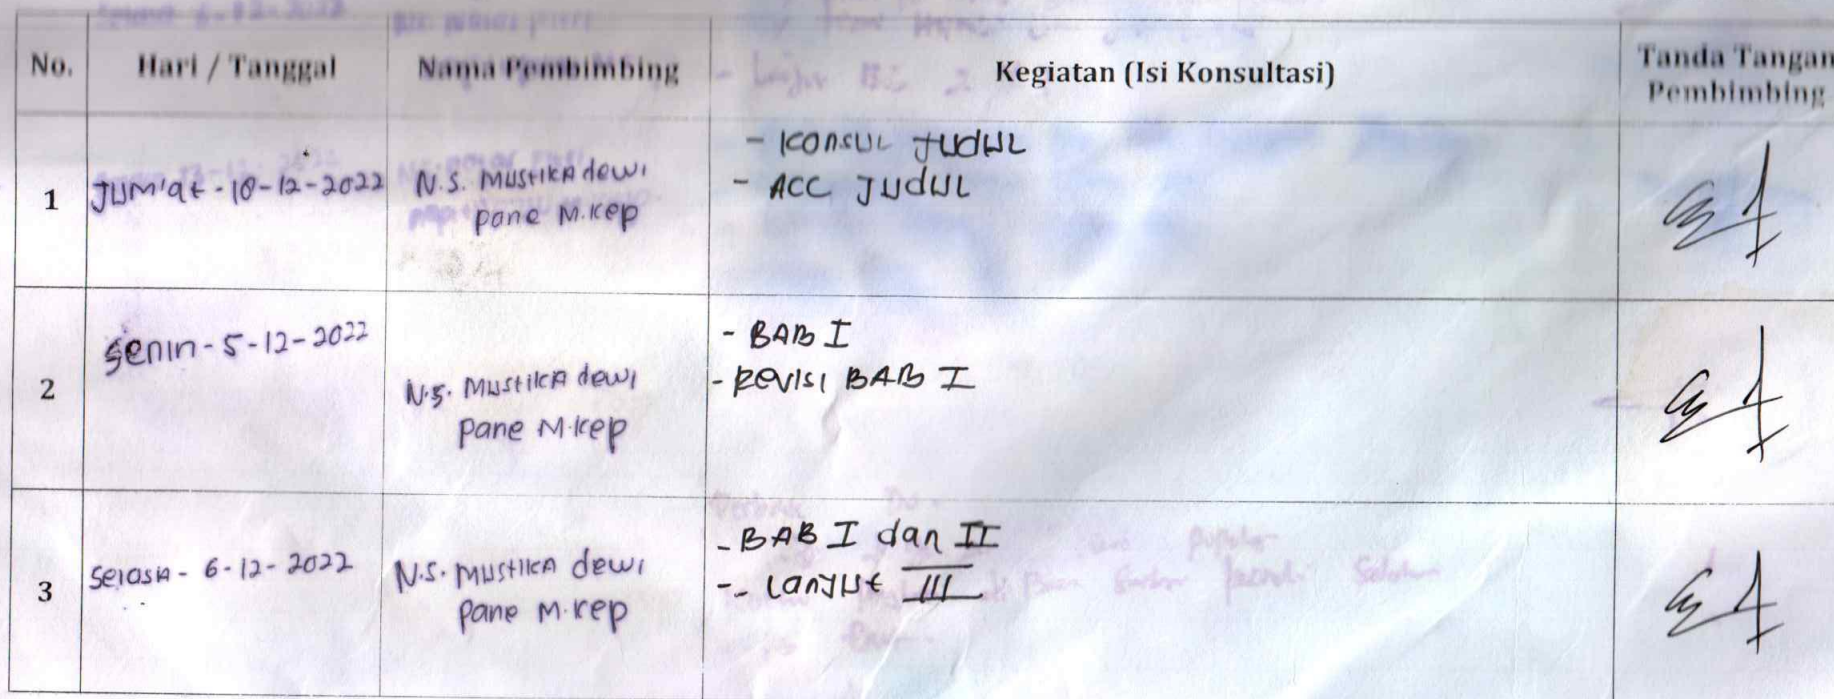 No. Hari / Tanggal Nama Pembimbing Kegiatan (Isi Konsultasi) Tanda Tangan Pembimbing
1 Jum'at - 10-12-2022 N.S. Mustika dewi pane M.kep
- Konsul Judul
- ACC Judul
2 Senin - 5-12-2022 N.S. Mustika dewi pane M.kep
- BAB I
- Revisi BAB I
3 Selasa - 6-12-2022 N.S. Mustika dewi pane M.kep
- BAB I dan II
- Lanjut III